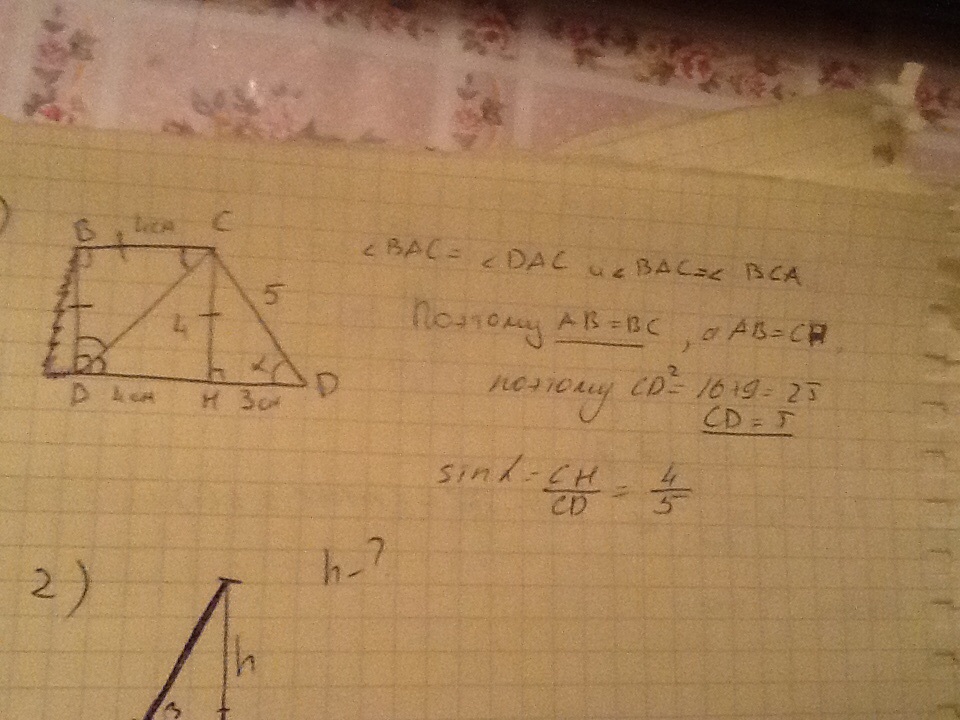 )
B 4см C
5
4
α
D 4см H 3см D
∠BAC = ∠DAC и ∠BAC = ∠ BCA
Поэтому AB = BC , а AB = CH,
поэтому CD² = 16 + 9 = 25
CD = 5
sin α = CH/CD = 4/5
2)
h - ?
h